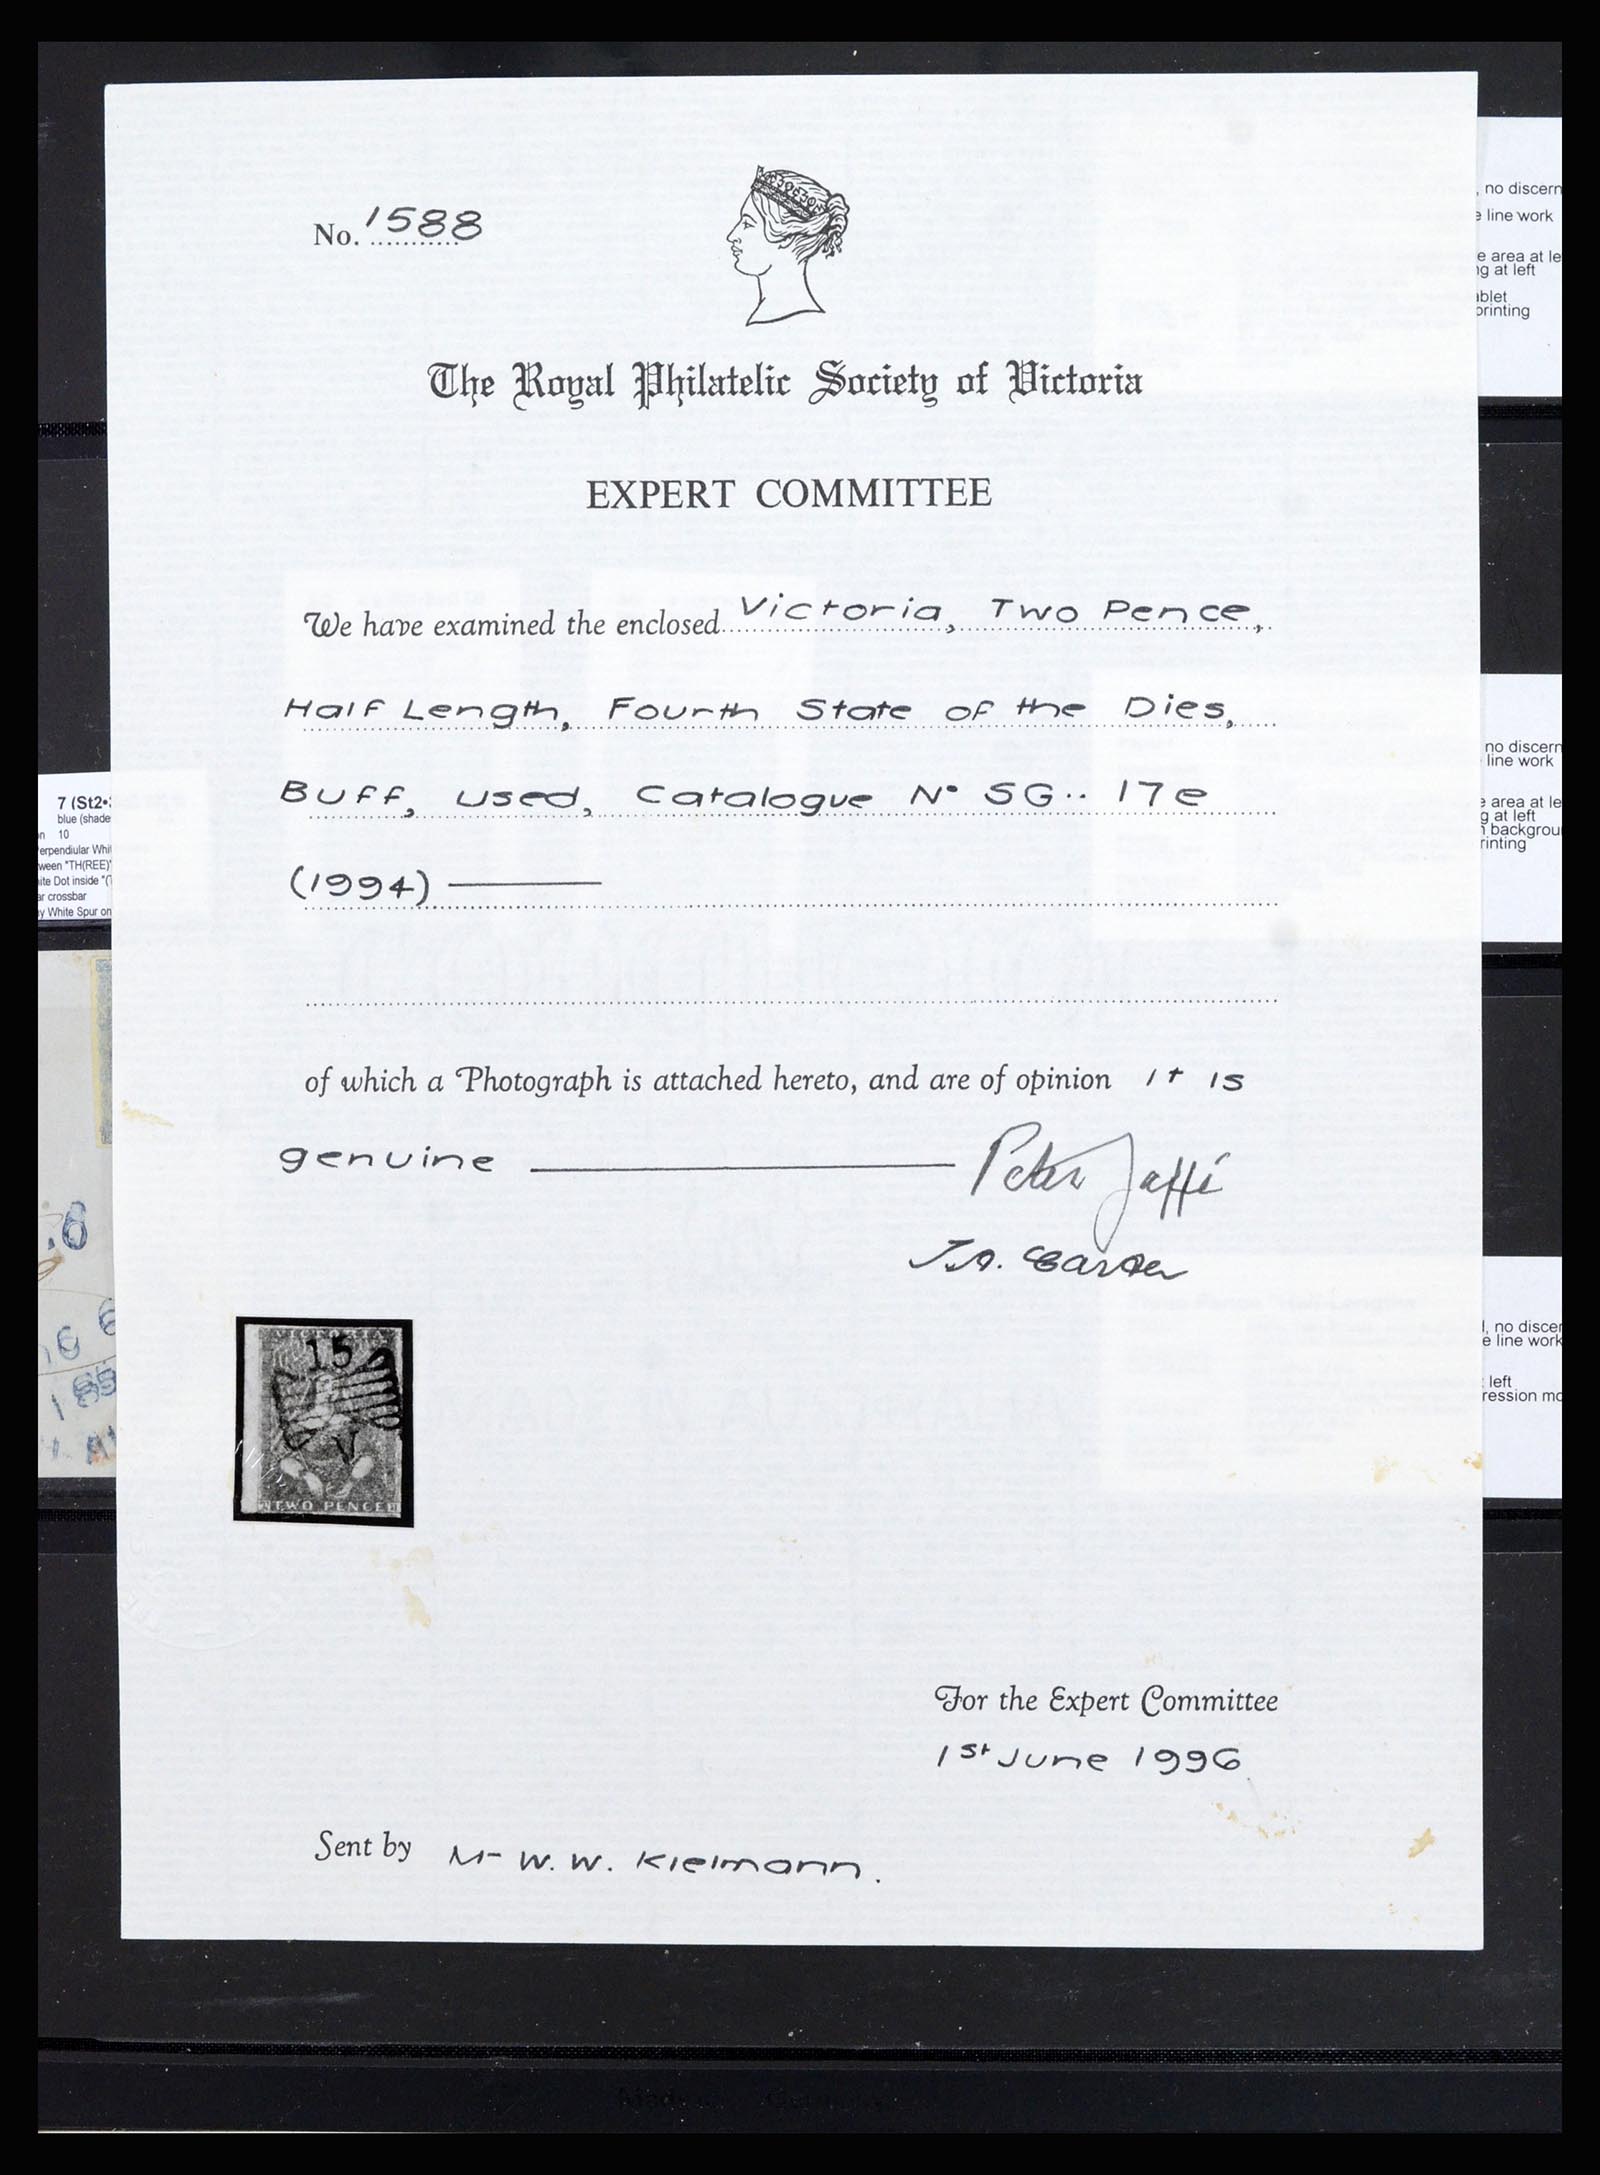 No. 1588
The Royal Philatelic Society of Victoria
EXPERT COMMITTEE
We have examined the enclosed Victoria, Two Pence,
Half Length, Fourth State of the Dies,
Buff, used, Catalogue No SG.. 17e
(1994)
of which a Photograph is attached hereto, and are of opinion it is
genuine
Peter Jaffé
J.A.
VICTORIA
15
V
TWO PENCE
For the Expert Committee
1st June 1996
Sent by Mr W. W. Kielmann.
7 (St2•
blue (shade
10
White
ween "TH(REE)"
ite Dot inside "(T
ar crossbar
y White Spur on
, no discern
line work
e area at le
g at left
ablet
printing
no discern
line work
area at le
g at left
backgrou
rinting
, no discer
e line work
left
ression mo